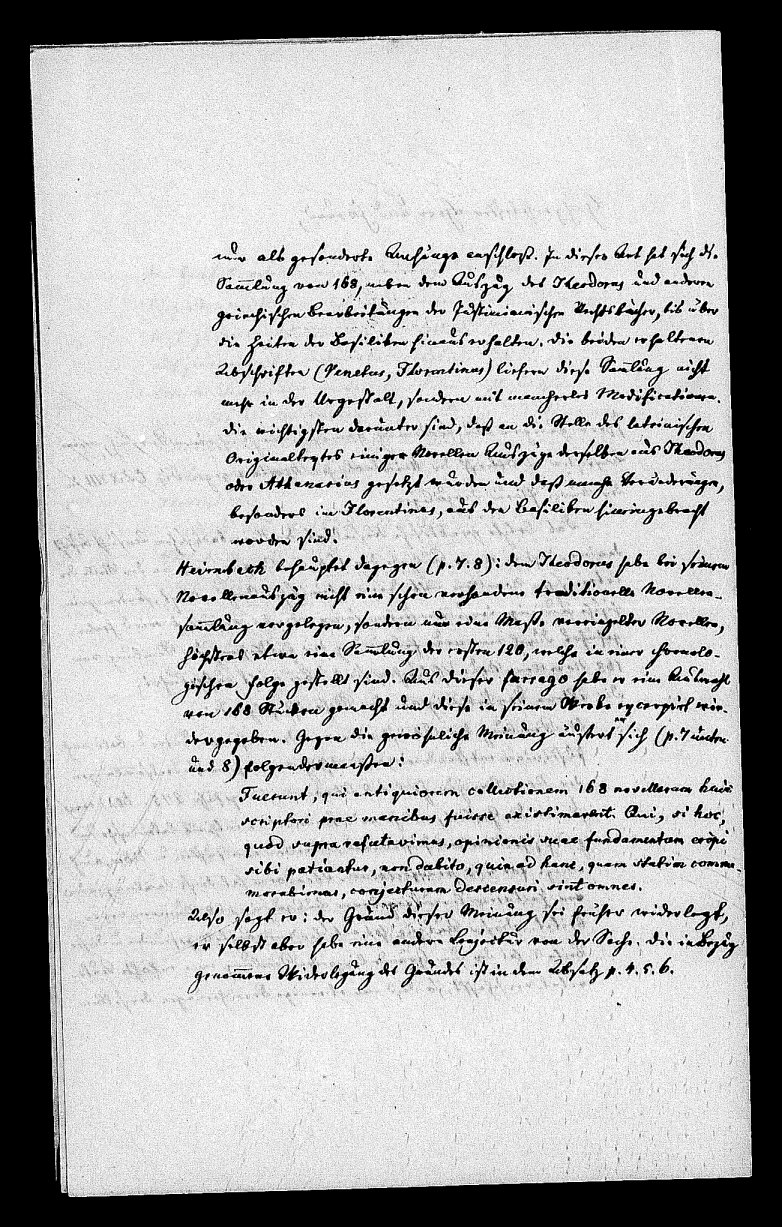 nur als gesonderte Anhänge anschloß. In dieser Art hat sich die
Sam̅lung von 168, neben dem Auszug des Theodorus und anderen
griechischen Bearbeitungen der Justinianischen Rechtsbücher, bis über
die Zeiten der Basiliken hinaus erhalten. Die beiden erhaltenen
Abschriften (Venetus, Florentinus) liefern diese Sam̅lung nicht
mehr in der Urgestalt, sondern mit mancherlei Modificationen.
die wichtigsten darunter sind, daß an die Stelle des lateinischen
Originaltextes einiger Novellen Auszüge derselben aus Theodorus
oder Athanasius gesetzt wurden und daß manche Veränderungen,
besonders im Florentinus, aus den Basiliken hineingebracht
worden sind.
Heimbach behauptet dagegen (p. 7. 8): dem Theodorus habe bei seinem
Novellenauszug nicht eine schon vorhandene traditionelle Novellen-
sam̅lung vorgelegen, sondern nur eine Masse vereinzelter Novellen,
höchstens etwa eine Sam̅lung der ersten 120, welche in einer chronolo-
gischen Folge gestellt sind. Aus dieser farrago habe er eine Auswahl
von 168 Stücken gemacht und diese in seinem Werke excerpirt wie-
dergegeben. Gegen die gewöhnliche Meinung äußert er sich (p. 7 unten
und 8) folgendermaßen:
Fuerunt, qui antiquiorem collectionem 168 novellarum huic
scriptori prae manibus fuisse existimarent. Qui, si hoc,
quod supra refutavimus, opinionis suae fundamentum eripi
sibi patiantur, non dubito, quin ad hanc, quam statim comme-
morabimus, conjecturam descensuri sint omnes.
Also sagt er: der Grund dieser Meinung sei früher widerlegt,
er selbst aber habe eine andere Conjectur von der Sache. Die in Bezug
genom̅ene Widerlegung des Grundes ist in dem Absatz p. 4. 5. 6.